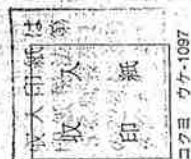 収入印紙
収入
印紙
コクヨ ウケ-1097